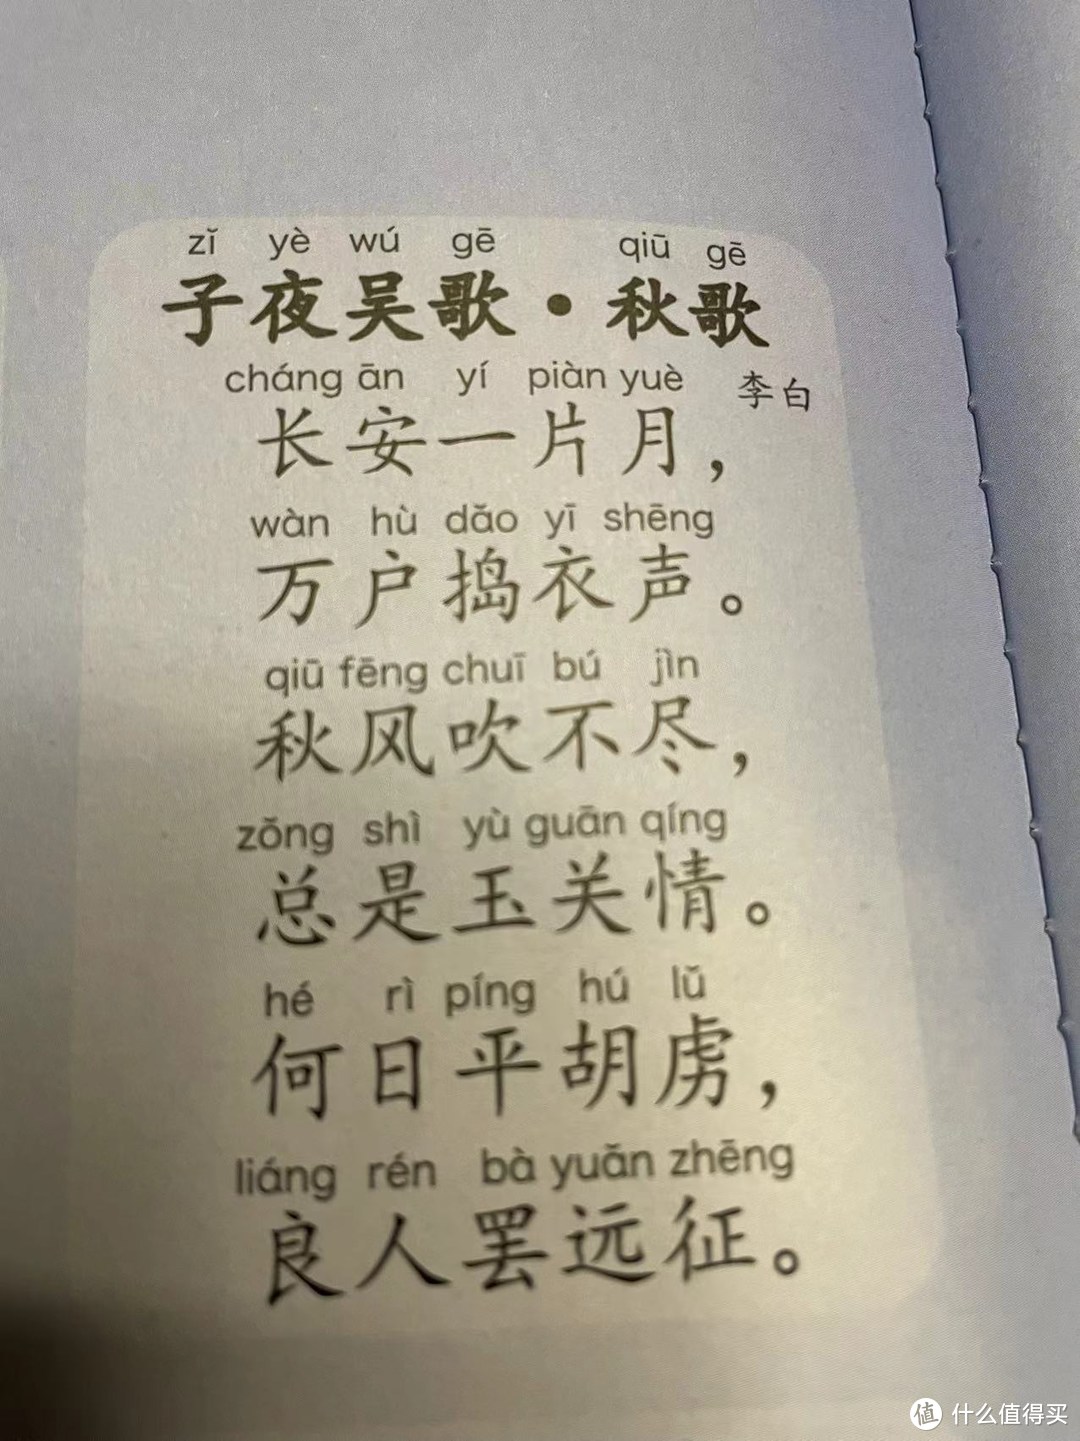 zǐ yè wú gē qiū gē
子夜吴歌·秋歌
cháng ān yí piàn yuè
李白
长安一片月，
wàn hù dǎo yī shēng
万户捣衣声。
qiū fēng chuī bú jìn
秋风吹不尽，
zǒng shì yù guān qíng
总是玉关情。
hé rì píng hú lǔ
何日平胡虏，
liáng rén bà yuǎn zhēng
良人罢远征。
值 什么值得买